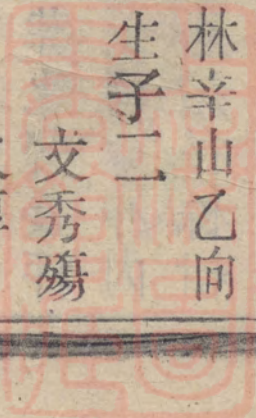 林辛山乙向
生子二
文秀殤